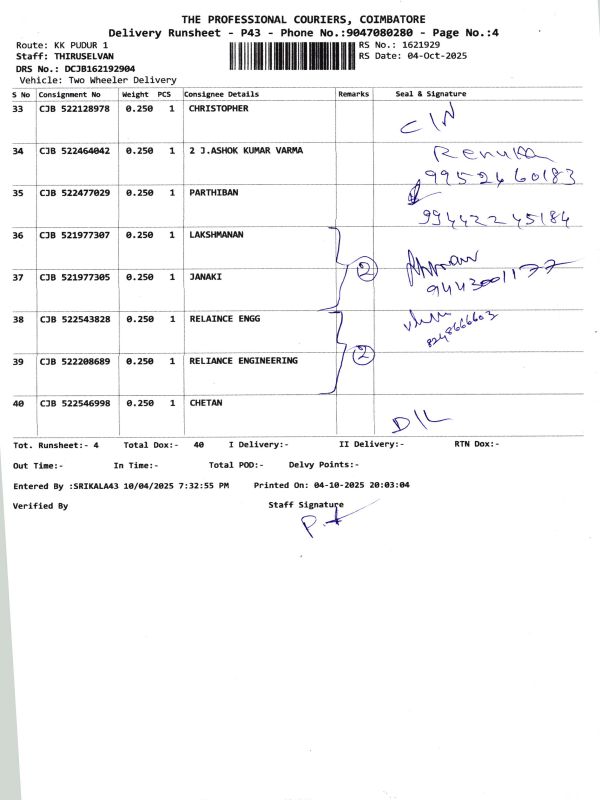 THE PROFESSIONAL COURIERS, COIMBATORE
Delivery Runsheet - P43 - Phone No.:9047080280 - Page No.:4
Route: KK PUDUR 1
RS No.: 1621929
Staff: THIRUSELVAN
RS Date: 04-Oct-2025
DRS No.: DCJB162192904
Vehicle: Two Wheeler Delivery
S No Consignment No Weight PCS Consignee Details Remarks Seal & Signature
33 CJB 522128978 0.250 1 CHRISTOPHER
CIN
34 CJB 522464042 0.250 1 2 J.ASHOK KUMAR VARMA Renuka
9952460183
35 CJB 522477029 0.250 1 PARTHIBAN
99442245184
36 CJB 521977307 0.250 1 LAKSHMANAN
2
37 CJB 521977305 0.250 1 JANAKI
9443001177
38 CJB 522543828 0.250 1 RELAINCE ENGG
8248666603
2
39 CJB 522208689 0.250 1 RELIANCE ENGINEERING
40 CJB 522546998 0.250 1 CHETAN
D/L
Tot. Runsheet:- 4 Total Dox:- 40 I Delivery:- II Delivery:- RTN Dox:-
Out Time:- In Time:- Total POD:- Delvy Points:-
Entered By :SRIKALA43 10/04/2025 7:32:55 PM Printed On: 04-10-2025 20:03:04
Verified By Staff Signature